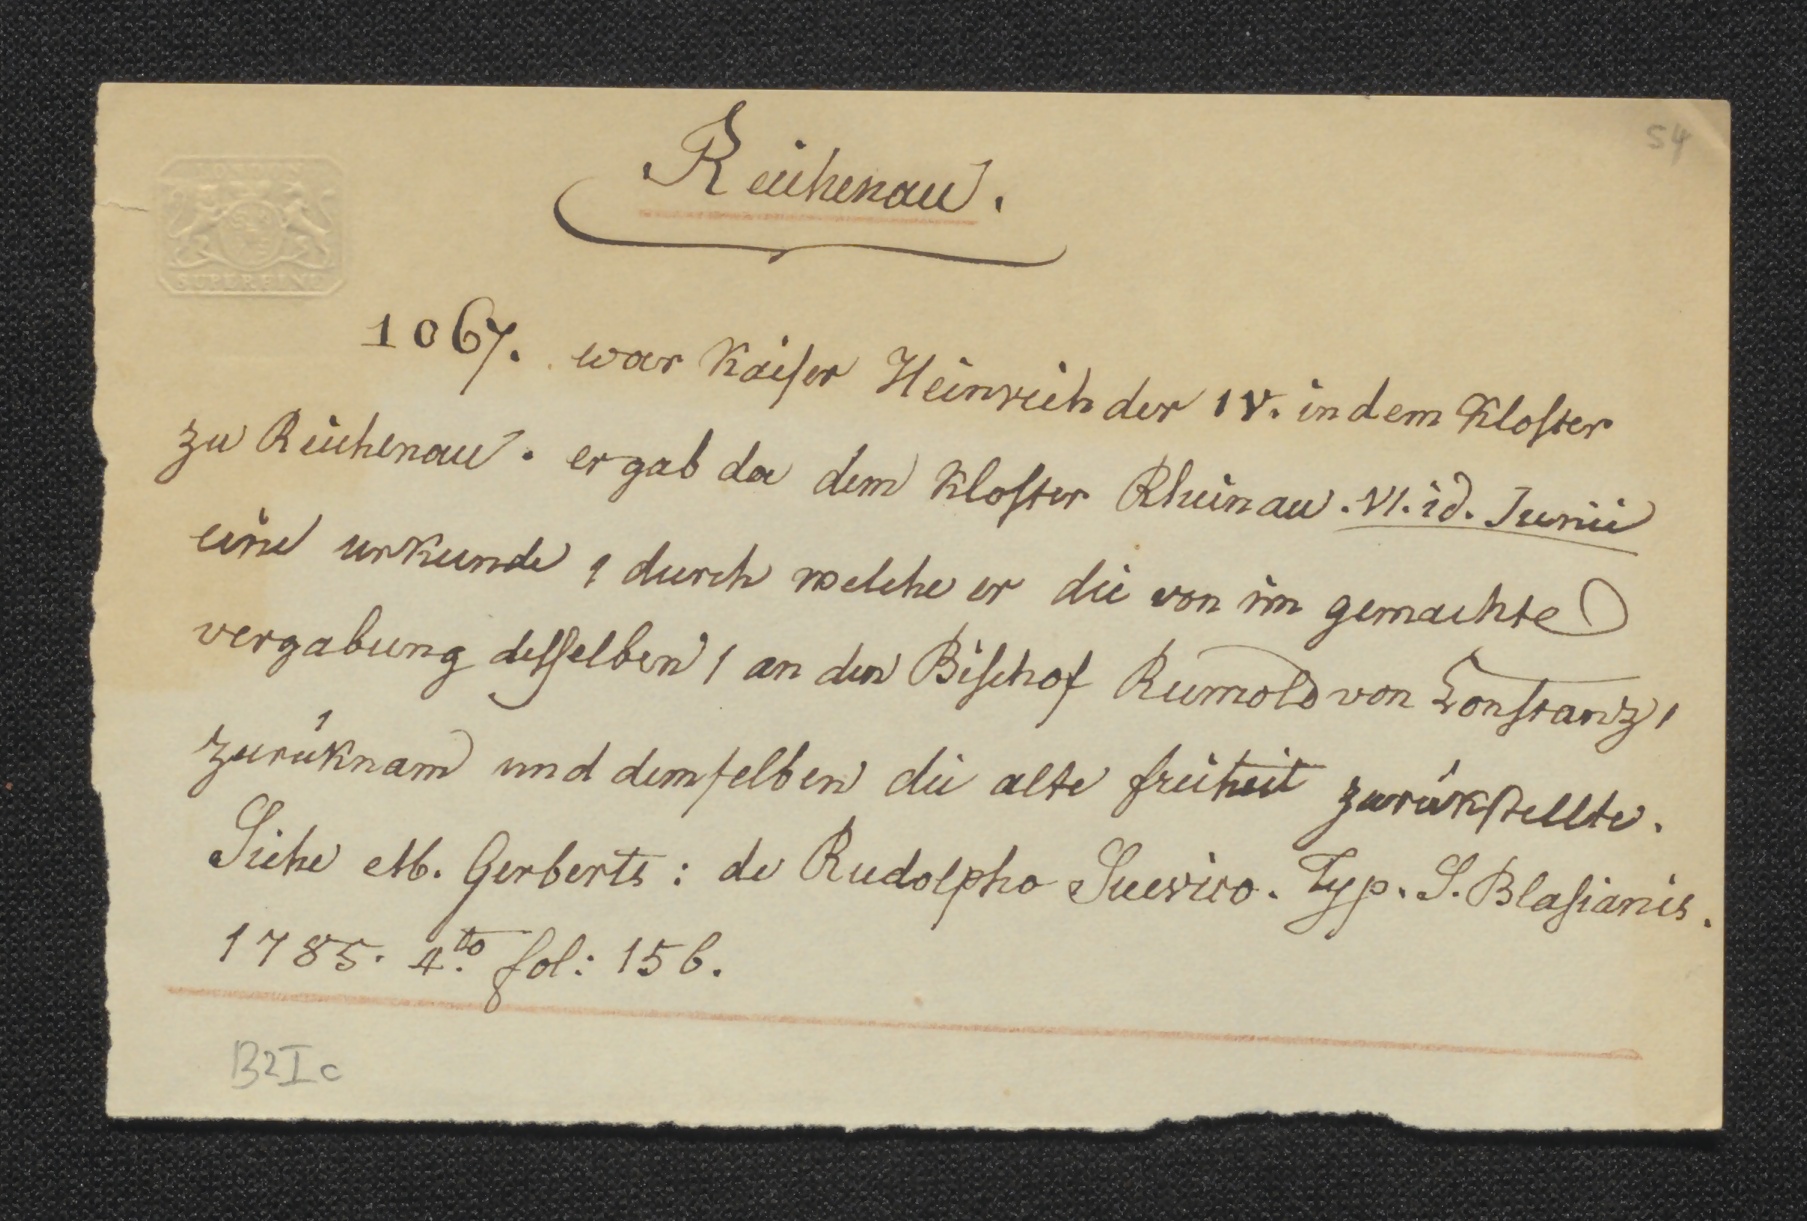 54
LONDON
SUPERFINE
Reichenau.
1067. war Kaiser Heinrich der IV. in dem Kloster
zu Reichenau. er gab da dem Kloster Rheinau. VI. id. Junii
eine urkunde, durch welche er die von im gemachte
vergabung desselben, an den Bischof Rumold von Constanz,
zurüknam und demselben die alte freiheit zurükstellte.
Siehe M. Gerberts: de Rudolpho Suevico. Typ. S. Blasianis.
1785. 4.to fol: 156.
B2Ic